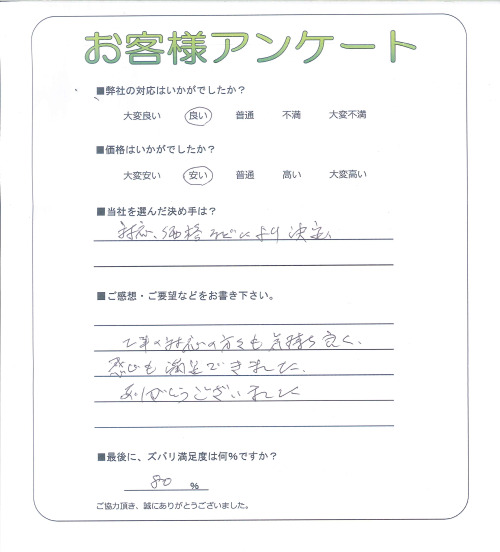 お客様アンケート
■弊社の対応はいかがでしたか？
大変良い 良い 普通 不満 大変不満
■価格はいかがでしたか？
大変安い 安い 普通 高い 大変高い
■当社を選んだ決め手は？
対応、価格などにより決定。
■ご感想・ご要望などをお書き下さい。
工事の対応の方々も気持ち良く、
も満足できました。
ありがとうございました
■最後に、ズバリ満足度は何％ですか？
80 ％
ご協力頂き、誠にありがとうございました。